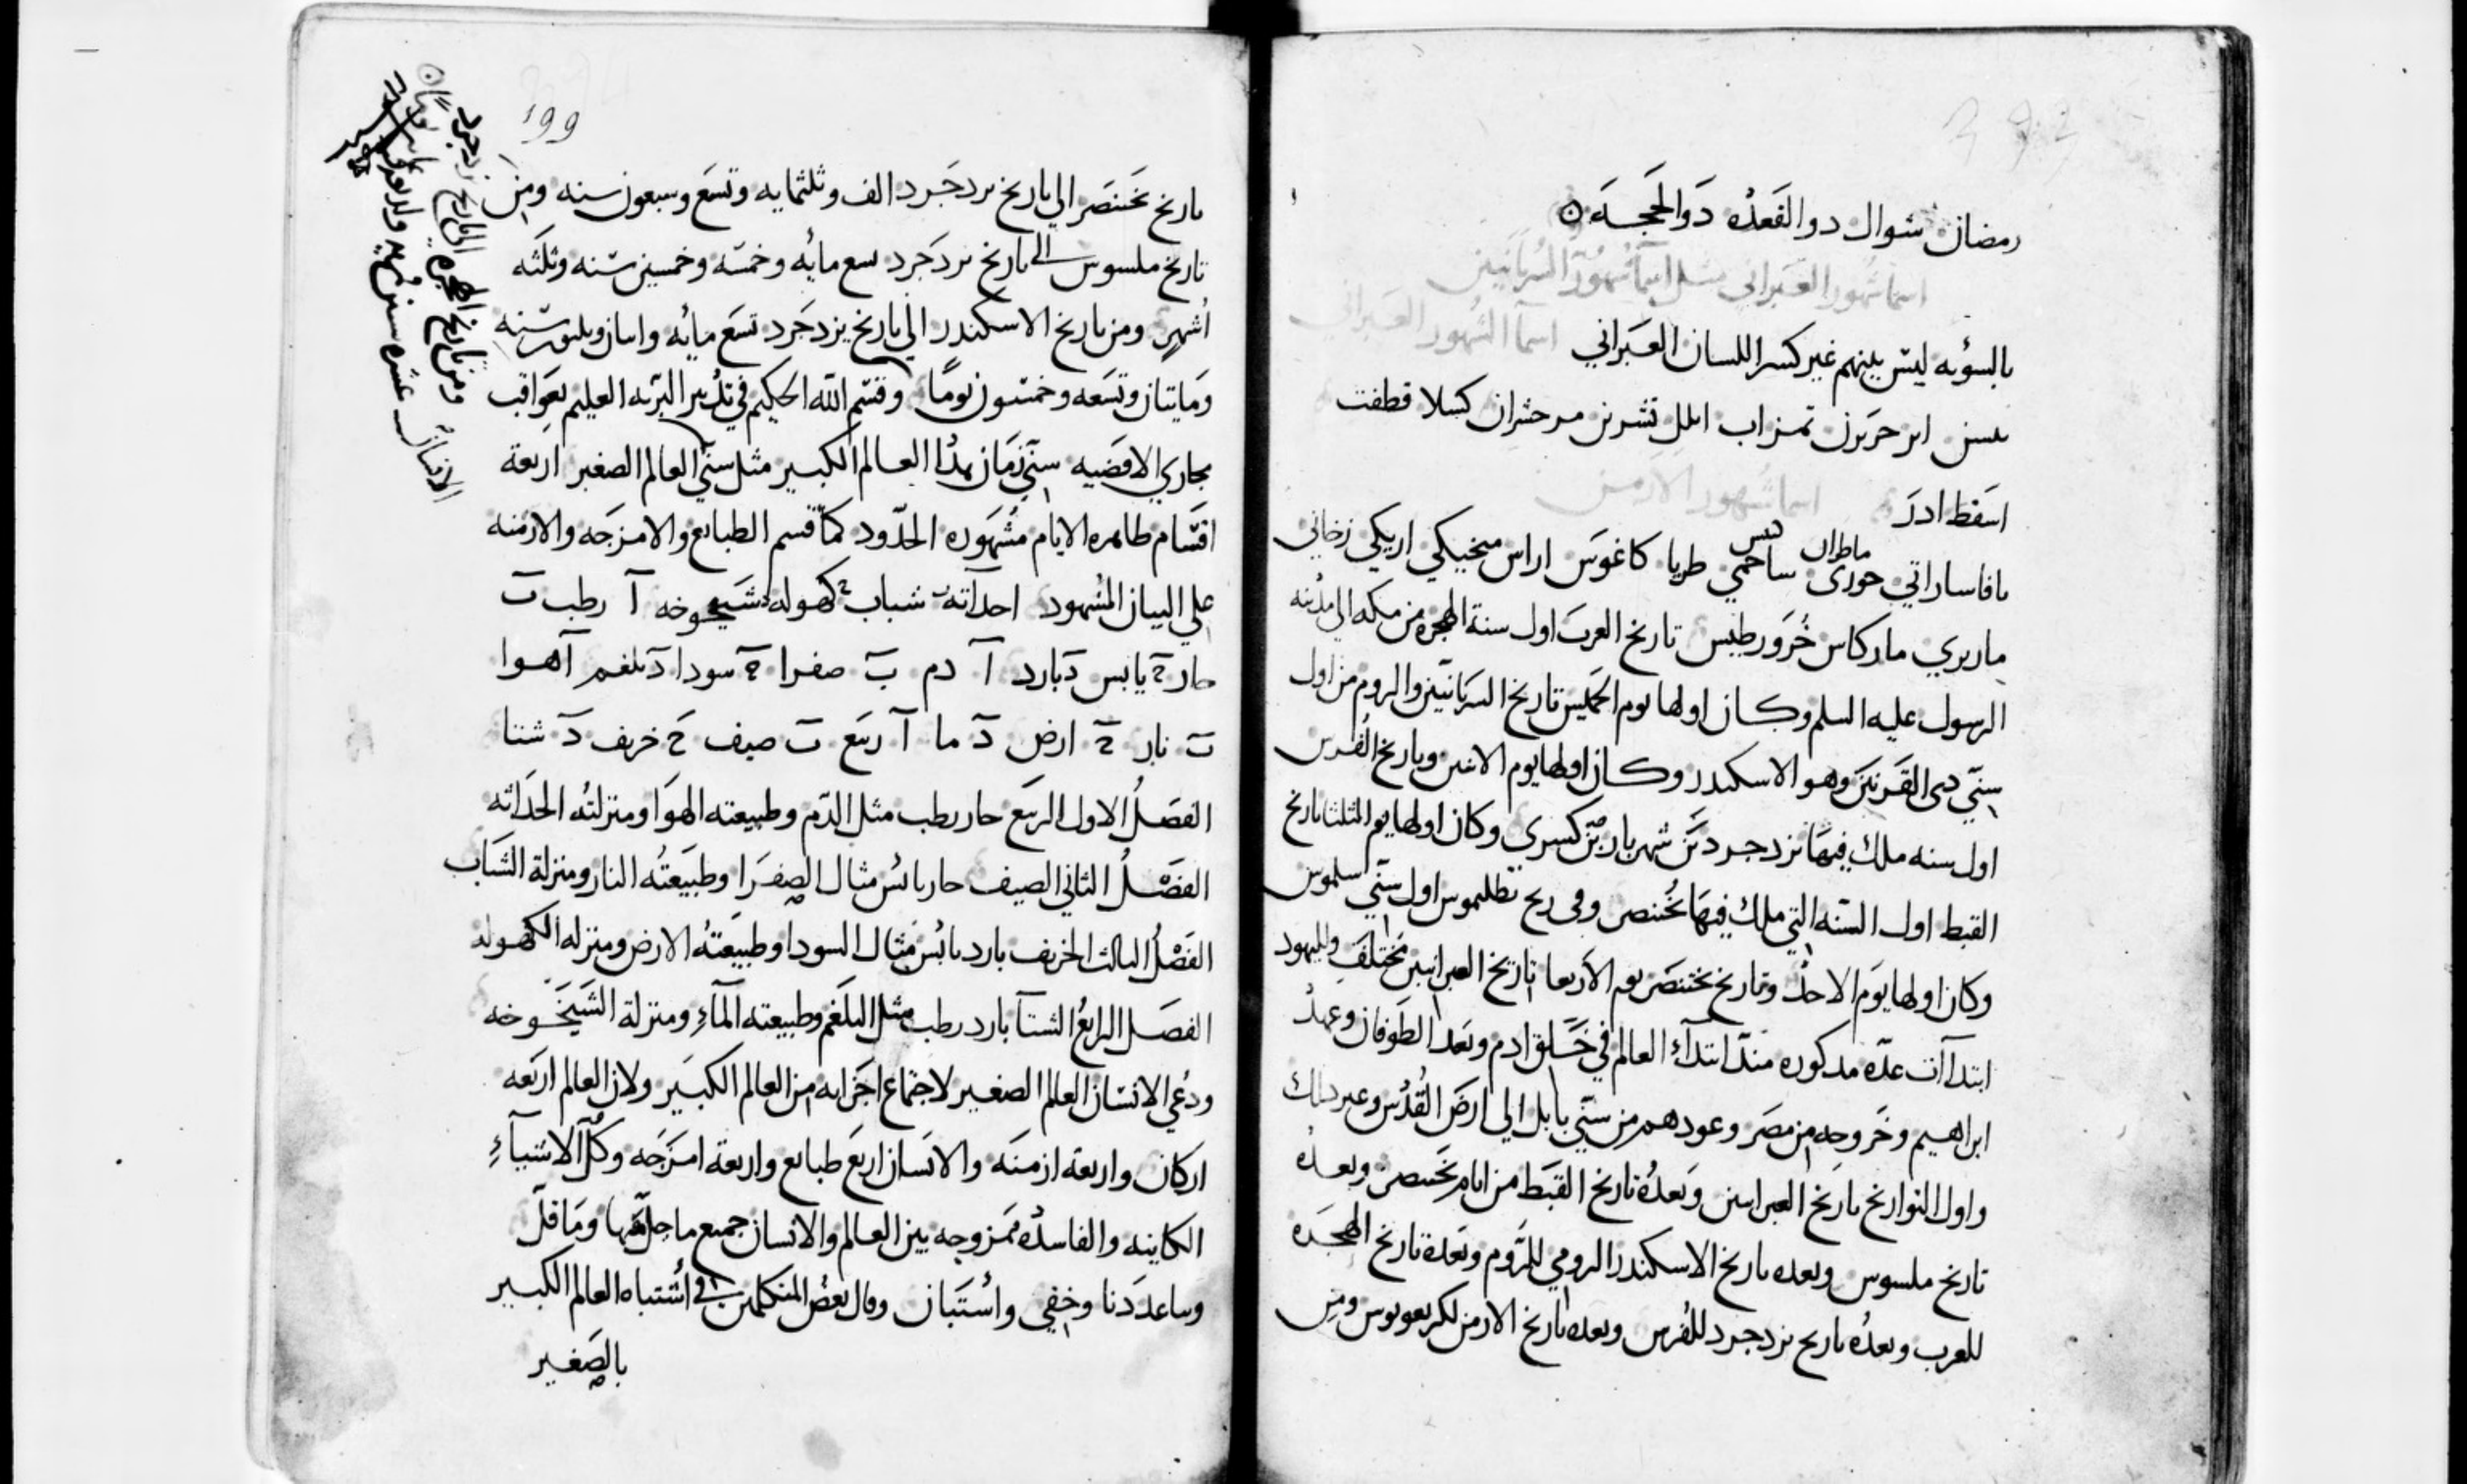 رمضان شوال ذوالقعده ذوالحجه
اسما شهور العبراني مثل اسما شهور السريانيين
بالسويه ليس بينهم غير كسر اللسان العبراني اسما الشهور العبراني
نيسن اير حزيرن تمز اب ايلل تشرين مرحشران كسلا قطفت
اسفط ادر اسما شهور الارمن
ماطران
نافاساراتي حوري ساحمي طريا كاغوس اراس ميخيكي اريكي
ماريري ماركاس خرورطيس تاريخ العرب اول سنة الهجره من مكه الي مدينه
الرسول عليه السلم وكان اولها يوم الخميس تاريخ السريانيين والروم من اول
سني دي القرنين وهو الاسكندر وكان اولها يوم الاثنين وتاريخ الفرس
اول سنه ملك فيها يزدجرد بن شهريار بن كسري وكان اولها يوم الثلثا تاريخ
القبط اول السنه التي ملك فيها بختنصر وفي زيج بطلميوس اول سني
وكان اولها يوم الاحد وتاريخ بختنصر يوم الاربعا تاريخ العبرانيين مختلف ولليهود
ابتداآت عده مدكوره مند ابتدآء العالم في خلق ادم وبعد الطوفان وعهد
ابراهيم وخروجه من مصر وعودهم من سبي بابل الي ارض القدس وغير دلك
واول التواريخ تاريخ العبرانيين وبعده تاريخ القبط من ايام بختنصر وبعده
تاريخ فيلبسوس وبعده تاريخ الاسكندر الرومي للروم وبعده تاريخ الهجره
للعرب وبعده تاريخ يزدجرد للفرس وبعده تاريخ الارمن لكريغوريوس ومن
199
تاريخ بختنصر الي تاريخ يزدجرد الف وثلثمايه وتسع وسبعون سنه ومن
تاريخ فيلبسوس الي تاريخ يزدجرد تسع مايه وخمسه وخمسين سنه وثلثه
اشهر ومن تاريخ الاسكندر الي تاريخ يزدجرد تسع مايه واثنان سنه
ومايتان وتسعه وخمسون يومًا وقسم الله الحكيم في تدبير البريه العليم بعواقب
مجاري الاقضيه سني زمان هدا العالم الكبير مثل سني العالم الصغير اربعة
اقسام ظاهره الايام مشهوره الحدود كما قسم الطبايع والامزجه والازمنه
علي البيان المشهود احداثه شباب كهوله شيخوخه آ رطب ب
حار ج يابس د بارد آ دم ب صفرا ج سودا د بلغم آ هوا
ب نار ج ارض د ما آ ربيع ب صيف ج خريف د شتا
الفصل الاول الربيع حار رطب مثل الدم وطبيعته الهوا ومنزلته الحداثه
الفصل الثاني الصيف حار يابس مثال الصفرا وطبيعته النار ومنزلة الشباب
الفصل الثالث الخريف بارد يابس مثال السودا وطبيعته الارض ومنزله الكهوله
الفصل الرابع الشتآ بارد رطب مثل البلغم وطبيعته المآء ومنزلة الشيخوخه
ودعي الانسان العالم الصغير لاجتماع اجزايه من العالم الكبير ولان العالم اربعه
اركان واربعة ازمنه والانسان اربع طبايع واربعة امزجه وكل الاشيآء
الكاينه والفاسده ممزوجه بين العالم والانسان جميع ما جل منها وما قل
وساعد دنا وخفي واستبان وقال بعض المتكلمين في اشتباه العالم الكبير
بالصغير
ومن تاريخ الهجره الي تاريخ يزدجرد
عشره سنين